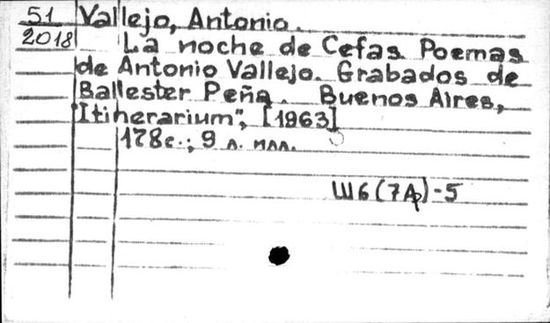 51
2018
Vallejo, Antonio.
La noche de Cefas. Poemas
de Antonio Vallejo. Grabados de
Ballester Peña. Buenos Aires,
"Itinerarium", [1963]
178с.; 9 л. илл.
Ш6(7Ар)-5